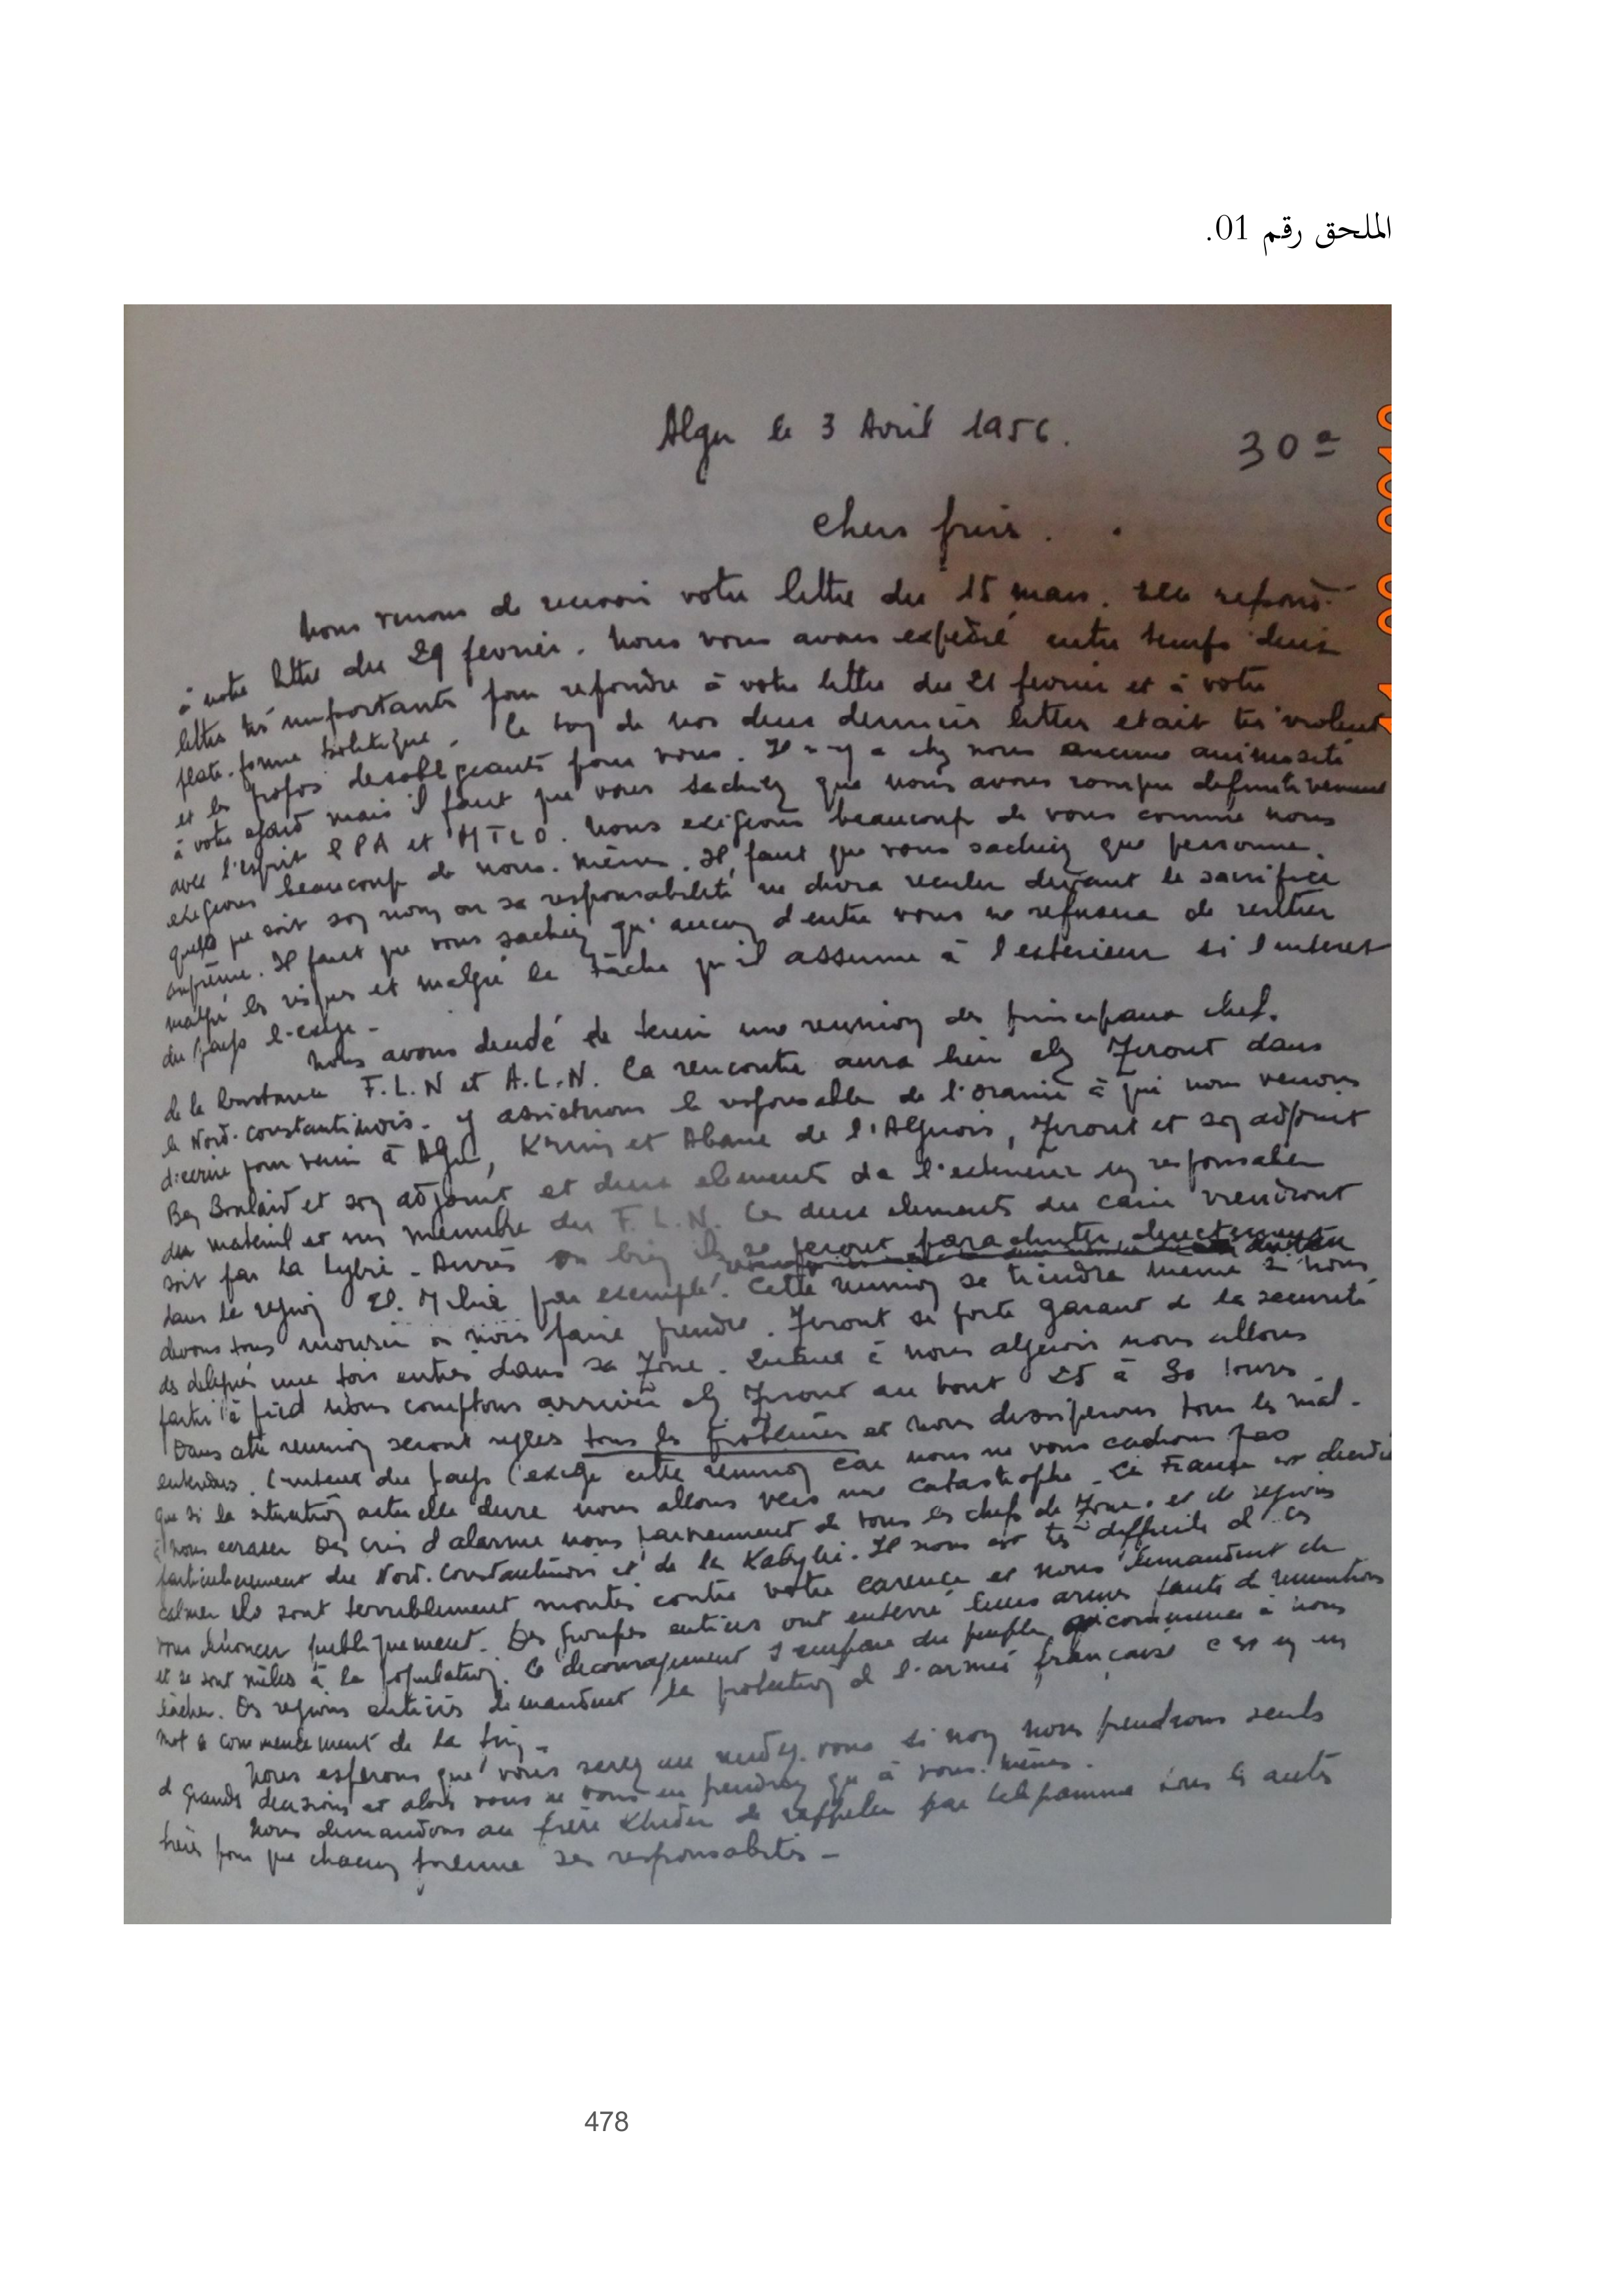 الملحق رقم 01.
Alger le 3 Avril 1956.
30 a
chers frères.
Nous venons de recevoir votre lettre du 15 mars. Elle répond
à notre lettre du 29 fevrier. Nous vous avons expédié entre temps deux
lettres très importantes pour repondre à votre lettre du 21 fevrier et à votre
plate-forme politique. Le ton de nos deux dernieres lettres etait tres violent
et les propos desobligeants pour vous. Il n-y a chez nous aucune animosité
à votre égard mais il faut que vous sachiez que nous avons rompu definitivement
avec l'esprit P P A et M T L D. Nous exigeons beaucoup de vous comme nous
exigeons beaucoup de nous-mêmes. Il faut que vous sachiez que personne,
quels que soit son nom ou sa responsabilité ne devra reculer devant le sacrifice
suprême. Il faut que vous sachiez qu'aucun d'entre vous ne refusera de rentrer
malgré les risques et malgré la tâche qu'il assume à l'exterieur si l'interet
du pays l-exige -
Nous avons decidé de tenir une reunion des principaux chefs
de la F.L.N et A.L.N. La rencontre aura lieu chez Zirout dans
le Nord-Constantinois. y assisterons le responsable de l'Oranie à qui nous venons
d'ecrire pour venir à Alger, Krim et Abane de l'Algerois, Zirout et son adjoint
Ben Boulaid et son adjoint et deux elements de l'exterieur un responsable
du materiel et un membre du F.L.N. Les deux elements du Caire viendront
soit par la Lybie - Aurès ou bien ils se feront parachuter directement
dans la region El. Milia par exemple. Cette reunion se tiendra meme si nous
devons tous mourir ou nous faire prendre. Zirout se porte garant de la securité
des delegués une fois entrés dans sa Zone. Quant à nous algerois nous allons
partir à pied Nous comptons arriver chez Zirout au bout 25 à 30 jours.
Dans cette reunion seront reglés tous les problemes et nous dissiperons tous les mal-
entendus. L'interet du pays l'exige cette reunion car nous ne vous cachons pas
que si la situation actuelle dure nous allons vers une catastrophe. La France est decidée
à nous ecraser Des cris d'alarme nous parviennent de tous les chefs de Zone et de regions
particulierement du Nord-Constantinois et de la Kabylie. Il nous est très difficile de les
calmer Ils sont terriblement montés contre votre carence et nous demandent de
vous dénoncer publiquement. Des groupes entiers ont enterré leurs armes faute de munitions
et se sont mêlés à la population. Le decouragement s'empare du peuple qui commence à nous
lâcher. Des regions entières demandent la protection de l'armée française c'est en un
mot le commencement de la fin -
Nous esperons que vous serez au rendez-vous si non nous prendrons seuls
de grandes decisions et alors vous ne vous en prendrez qu'à vous-mêmes.
Nous demandons au frère Khider de rappeler par telegramme tous les autres
frères pour que chacun prenne ses responsabilités -
478